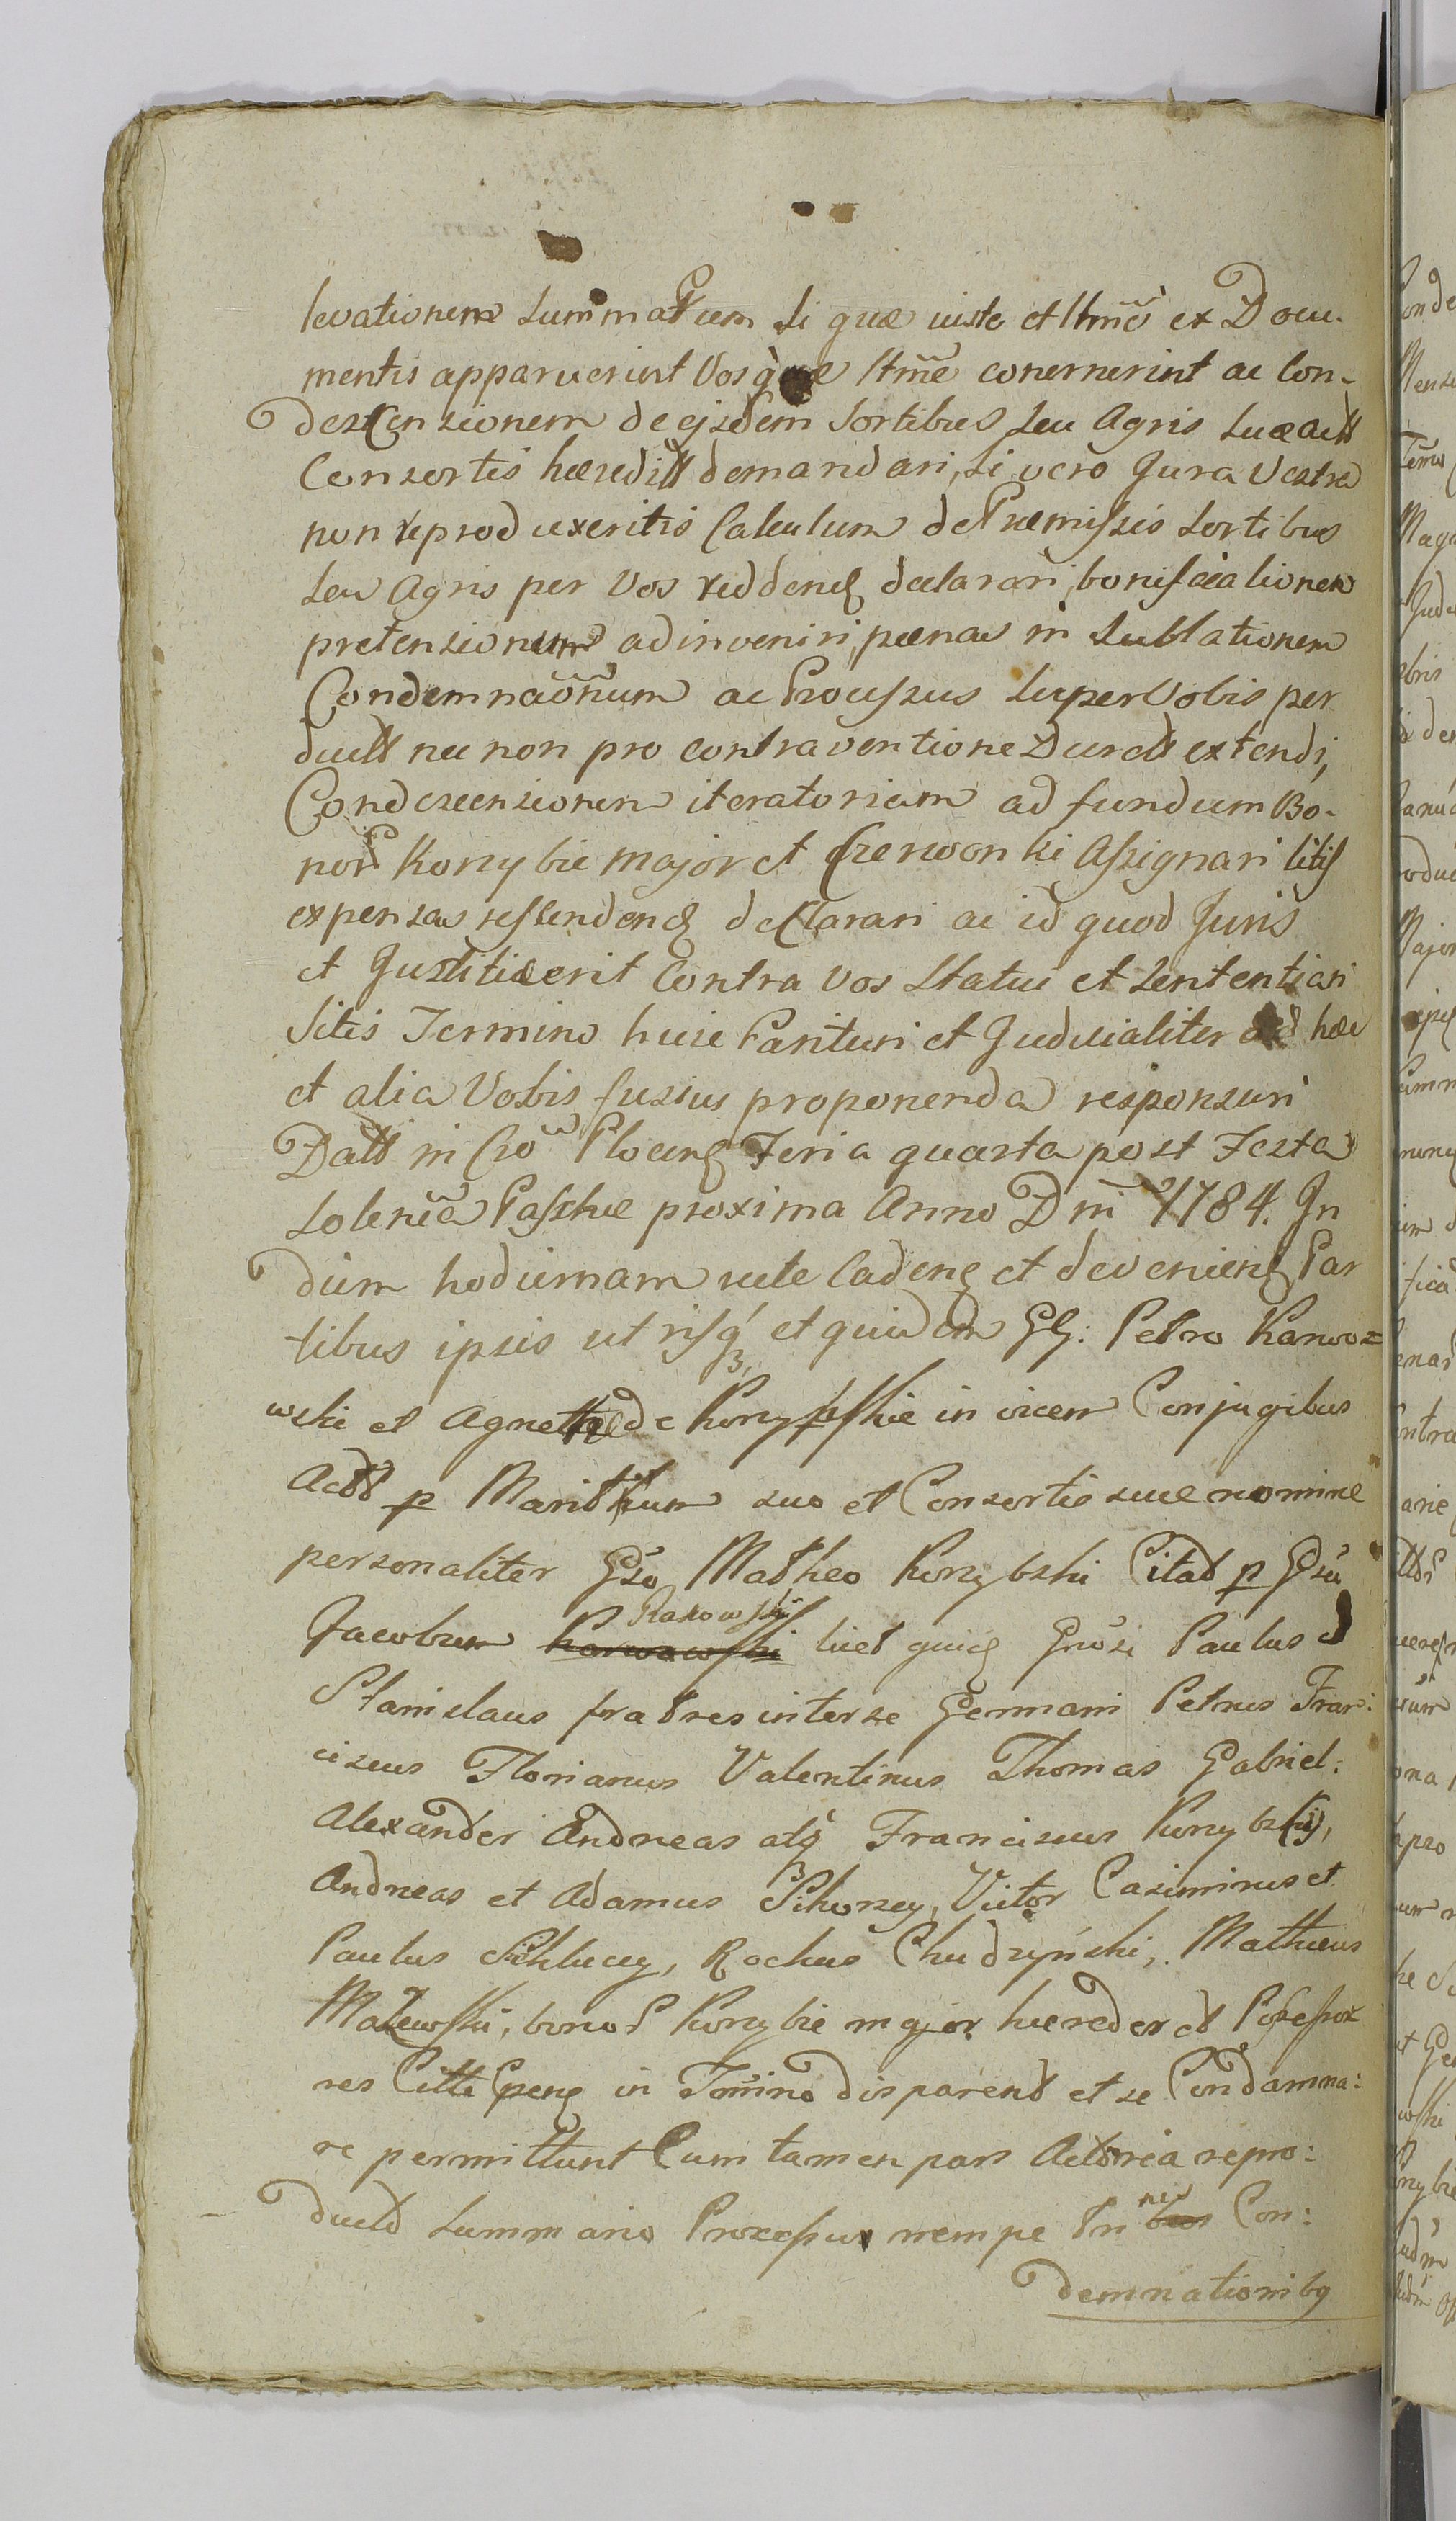 levationem Summarum Si quæ iuste et ltmẽ ex Docu-
mentis apparuerint Vosque ltmẽ concernerint ac Con-
descensionem de ejsdem Sortibus Seu Agris
Consortis hæredill demandari, Si vero Jura Vestra
non reproduxeritis Calculum de Præmissis Sortibus
Seu Agris per Vos reddend declarari, bonificationem
pretensionum adinveniri, pænas in Sublationem
Condemnaõnum ac Processus Super Vobis per
ductt nec non pro contraventione Decrett extendi,
Condescensionem iteratoriam ad fundum Bo-
nor Konybie major et Czerwonki Assignari litis
expensas refundend declarari ac id quod Juris
et Justitiæ erit Contra Vos Statui et Sententiari
Sitis Termino huic Parituri et Judicialiter ad hæc
et alia Vobis fusius proponenda responsuri
Datt in Crõ Plocen Feria quarta post Festa
Solenĩa Paschæ proxima Anno Dni 1784. In
diem hodiernam recte Caden et devenien Par
tibus ipsis utrisq et quidem GG: Petro Karwo=
wski et Agnethe de Konybskie in vicem Conjugibus
Actt p Marittum suo et Consortis suæ nomine
personaliter Gso Matheo Konybski Citat p Gsu
Jacobum Karwowski Rakowski licet quid Grosi Paulus et
Stanislaus fratres inter se Germani Petrus Fran:
ciscus Florianus Valentinus Thomas Gabriel:
Alexander Andreas atq Franciscus Konybscij,
Andreas et Adamus Victor Casimirus et
Paulus Rochus Chudzyński, Mathæus
bonor Konybie major hæredes et Possesso
res Citti in Termino disparent et se Condamna:
re permittunt Cum tamen pars Actorea repro:
ductt Summario Processus nempe Tri bus nis Con:
demnationibq